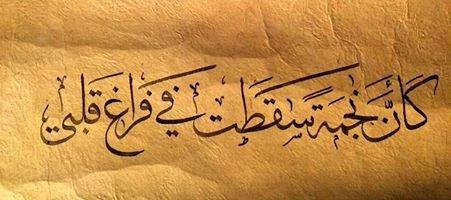 كَأَنَّ نَجْمَةً سَقَطَت في فَراغِ قَلبي